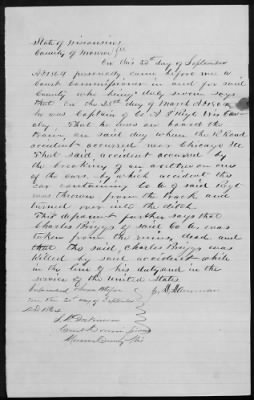 State of Wisconsin
County of Monroe
On this 23d day of September
A.D. 1864 personally came before me a
Court Commissioner in and for said
County who being duly sworn says
that on the day of March A.D. 186
he was Captain of Co A 1st Regt Wis Cav
alry That he was on board the
train on said day when the R Road
accident occurred near Chicago Ill
That said accident occurred by
the breaking of an under one
of the cars, by which accident this
car containing Co A of said Regt
was thrown from the track and
turned over into the ditch
This deponent further says that
Charles Briggs of said Co A, was
taken from the ruins, dead, and
that the said, Charles Briggs was
killed by said accident while
in the line of his duty and in the
service of the United States
Subscribed & sworn before
me this day of September
A.D. 1864
Court Commissioner
Monroe County Wis